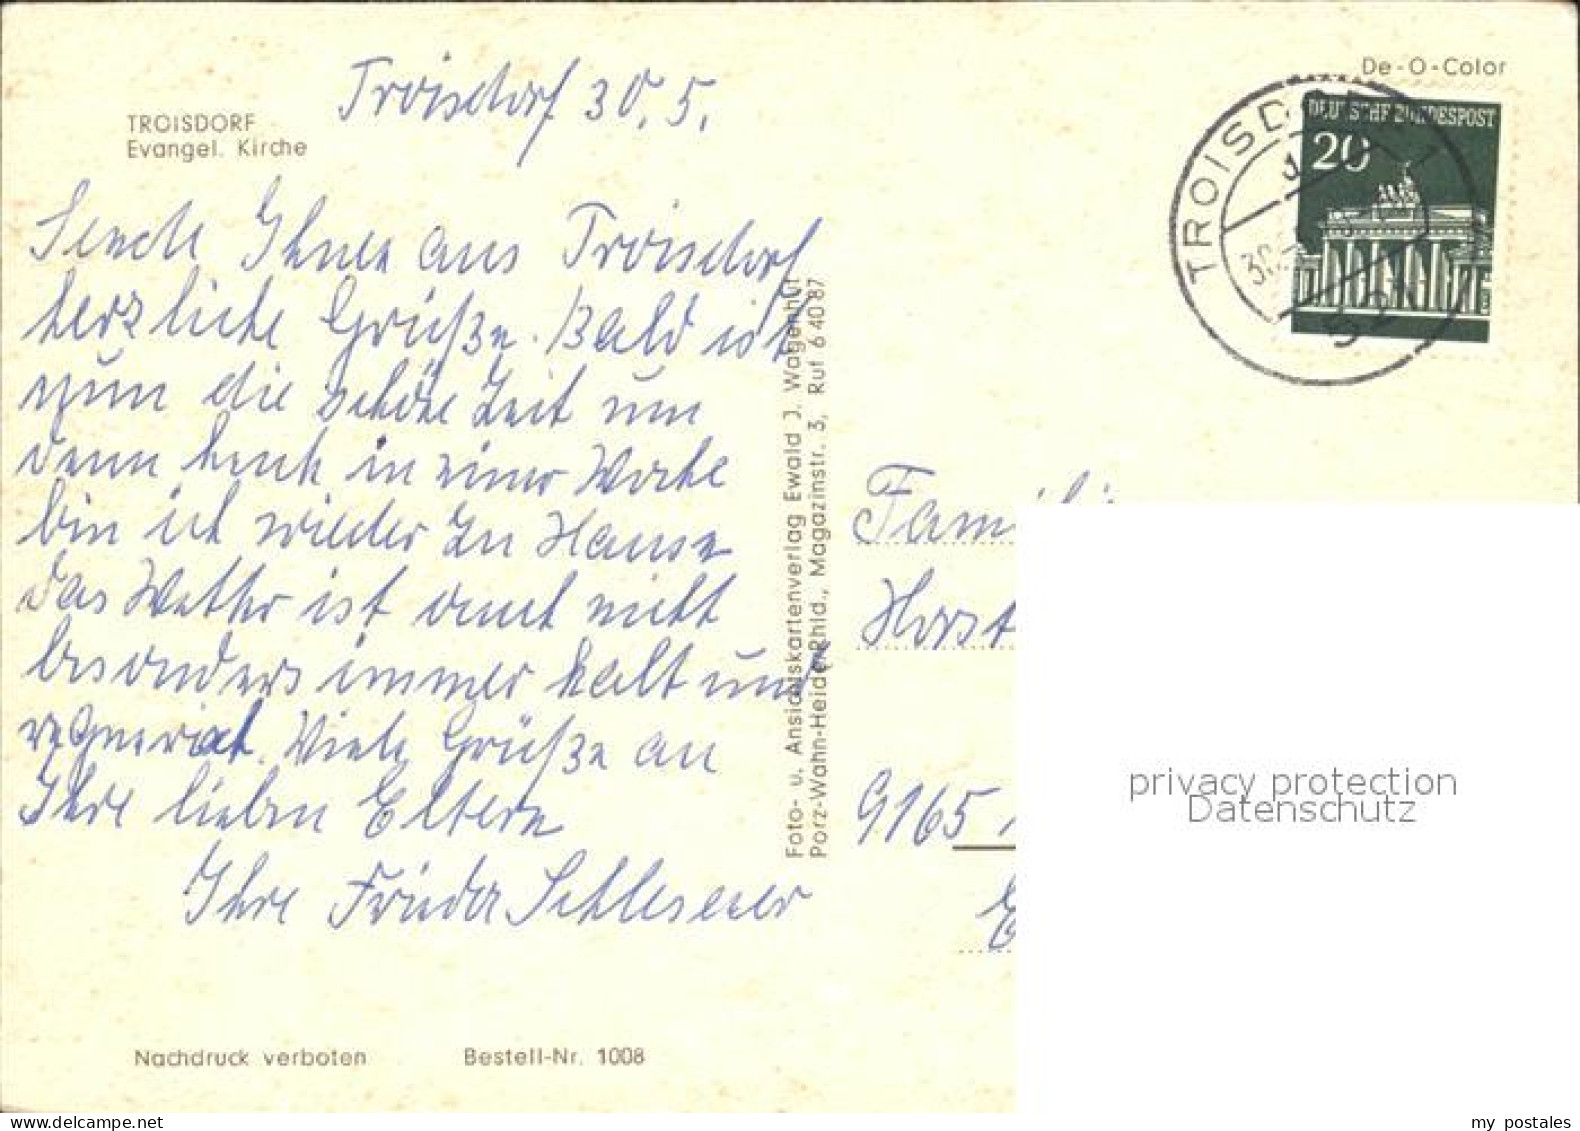 De-O-Color
TROISDORF
Evangel. Kirche
Troisdorf 30. 5.
DEUTSCHE BUNDESPOST
20
TROISDORF 1
521
Sende Ihnen aus Troisdorf
herzliche Grüße. Bald ist
nun die schöne Zeit um
denn heute in einer Woche
bin ich wieder zu Hause
das Wetter ist auch nicht
besonders immer kalt und
regnerisch. Viele Grüße an
Ihre lieben Eltern
Ihre Frieda
Foto- u. Ansichtskartenverlag Ewald J. Wagenhut
Porz-Wahn-Heide/Rhld., Magazinstr. 3, Ruf 6 40 87
Horst
9165
privacy protection
Datenschutz
Nachdruck verboten Bestell-Nr. 1008
my postales